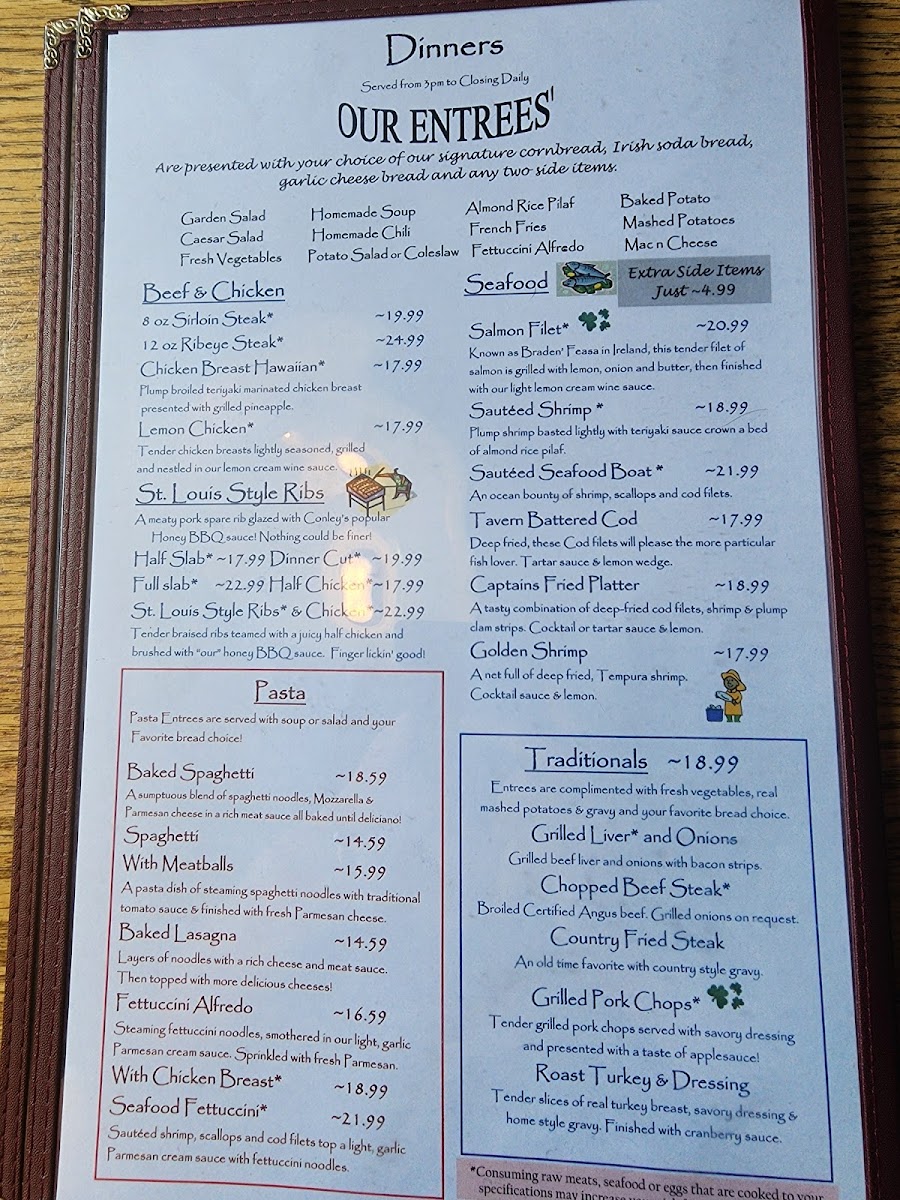 Dinners
Served from 3pm to Closing Daily
OUR ENTREES'
Are presented with your choice of our signature cornbread, Irish soda bread,
garlic cheese bread and any two side items.
Garden Salad
Caesar Salad
Fresh Vegetables
Homemade Soup
Homemade Chili
Potato Salad or Coleslaw
Almond Rice Pilaf
French Fries
Fettuccini Alfredo
Baked Potato
Mashed Potatoes
Mac n Cheese
Beef & Chicken
8 oz Sirloin Steak* ~19.99
12 oz Ribeye Steak* ~24.99
Chicken Breast Hawaiian* ~17.99
Plump broiled teriyaki marinated chicken breast
presented with grilled pineapple.
Lemon Chicken* ~17.99
Tender chicken breasts lightly seasoned, grilled
and nestled in our lemon cream wine sauce.
St. Louis Style Ribs
A meaty pork spare rib glazed with Conley's popular
Honey BBQ sauce! Nothing could be finer!
Half Slab* ~17.99 Dinner Cut* ~19.99
Full slab* ~22.99 Half Chicken* ~17.99
St. Louis Style Ribs* & Chicken* ~22.99
Tender braised ribs teamed with a juicy half chicken and
brushed with "our" honey BBQ sauce. Finger lickin' good!
Pasta
Pasta Entrees are served with soup or salad and your
Favorite bread choice!
Baked Spaghetti ~18.59
A sumptuous blend of spaghetti noodles, Mozzarella &
Parmesan cheese in a rich meat sauce all baked until deliciano!
Spaghetti ~14.59
With Meatballs ~15.99
A pasta dish of steaming spaghetti noodles with traditional
tomato sauce & finished with fresh Parmesan cheese.
Baked Lasagna ~14.59
Layers of noodles with a rich cheese and meat sauce.
Then topped with more delicious cheeses!
Fettuccini Alfredo ~16.59
Steaming fettuccini noodles, smothered in our light, garlic
Parmesan cream sauce. Sprinkled with fresh Parmesan.
With Chicken Breast* ~18.99
Seafood Fettuccini* ~21.99
Sautéed shrimp, scallops and cod filets top a light, garlic
Parmesan cream sauce with fettuccini noodles.
Seafood
Extra Side Items
Just ~4.99
Salmon Filet* ~20.99
Known as Braden' Feasa in Ireland, this tender filet of
salmon is grilled with lemon, onion and butter, then finished
with our light lemon cream wine sauce.
Sautéed Shrimp * ~18.99
Plump shrimp basted lightly with teriyaki sauce crown a bed
of almond rice pilaf.
Sautéed Seafood Boat * ~21.99
An ocean bounty of shrimp, scallops and cod filets.
Tavern Battered Cod ~17.99
Deep fried, these Cod filets will please the more particular
fish lover. Tartar sauce & lemon wedge.
Captains Fried Platter ~18.99
A tasty combination of deep-fried cod filets, shrimp & plump
clam strips. Cocktail or tartar sauce & lemon.
Golden Shrimp ~17.99
A net full of deep fried, Tempura shrimp.
Cocktail sauce & lemon.
Traditionals ~18.99
Entrees are complimented with fresh vegetables, real
mashed potatoes & gravy and your favorite bread choice.
Grilled Liver* and Onions
Grilled beef liver and onions with bacon strips.
Chopped Beef Steak*
Broiled Certified Angus beef. Grilled onions on request.
Country Fried Steak
An old time favorite with country style gravy.
Grilled Pork Chops*
Tender grilled pork chops served with savory dressing
and presented with a taste of applesauce!
Roast Turkey & Dressing
Tender slices of real turkey breast, savory dressing &
home style gravy. Finished with cranberry sauce.
*Consuming raw meats, seafood or eggs that are cooked to your
specifications may increase